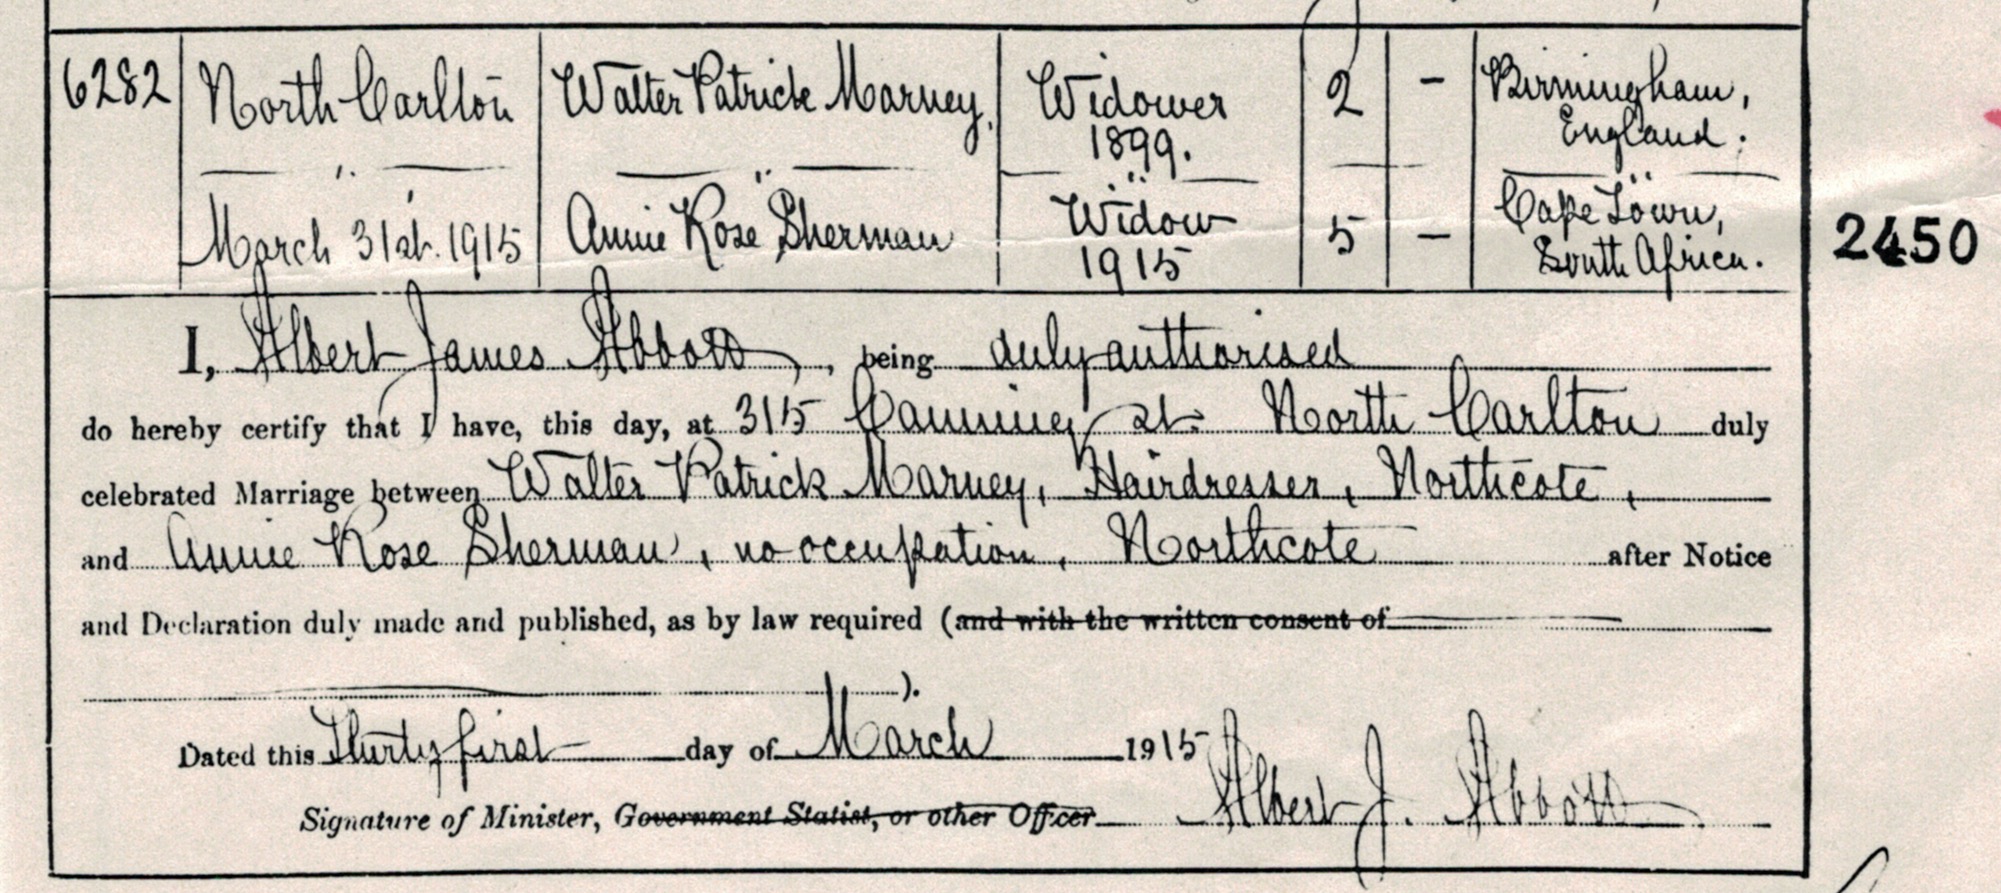 6282 North Carlton Walter Patrick Marney, Widower 1899. 2 - Birmingham, England.
" " " "
March 31st. 1915 Annie Rose Sherman Widow 1915 5 - Cape Town, South Africa.
2450
I, Albert James Abbott, being duly authorised
do hereby certify that I have, this day, at 315 Canning st. North Carlton duly
celebrated Marriage between Walter Patrick Marney, Hairdresser, Northcote,
and Annie Rose Sherman, no occupation, Northcote after Notice
and Declaration duly made and published, as by law required (and with the written consent of
).
Dated this Thirty first day of March 1915
Signature of Minister, Government Statist, or other Officer Albert J. Abbott